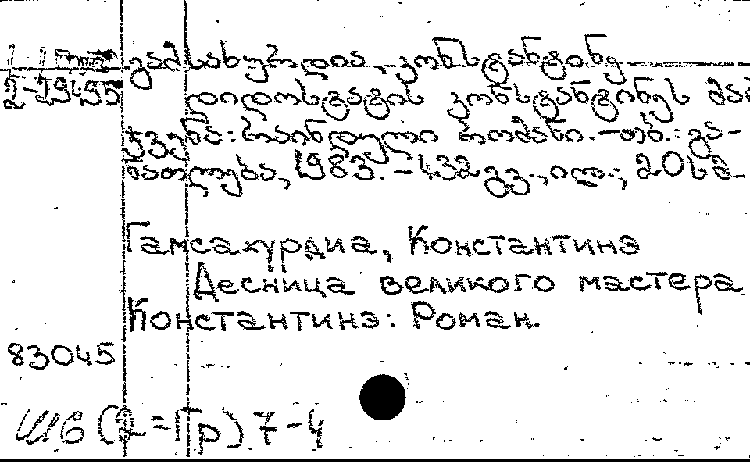 გამსახურდია, კონსტანტინე
2-29495
დიდოსტატის კონსტანტინეს მარ
ჯვენა: რაინდული რომანი.-თბ.: გა-
ნათლება, 1983.-432 გვ., ილ.; 20 სმ
Гамсахурдиа, Константинэ
Десница великого мастера
Константинэ: Роман.
83045
Ш6(2=Гр)7-4